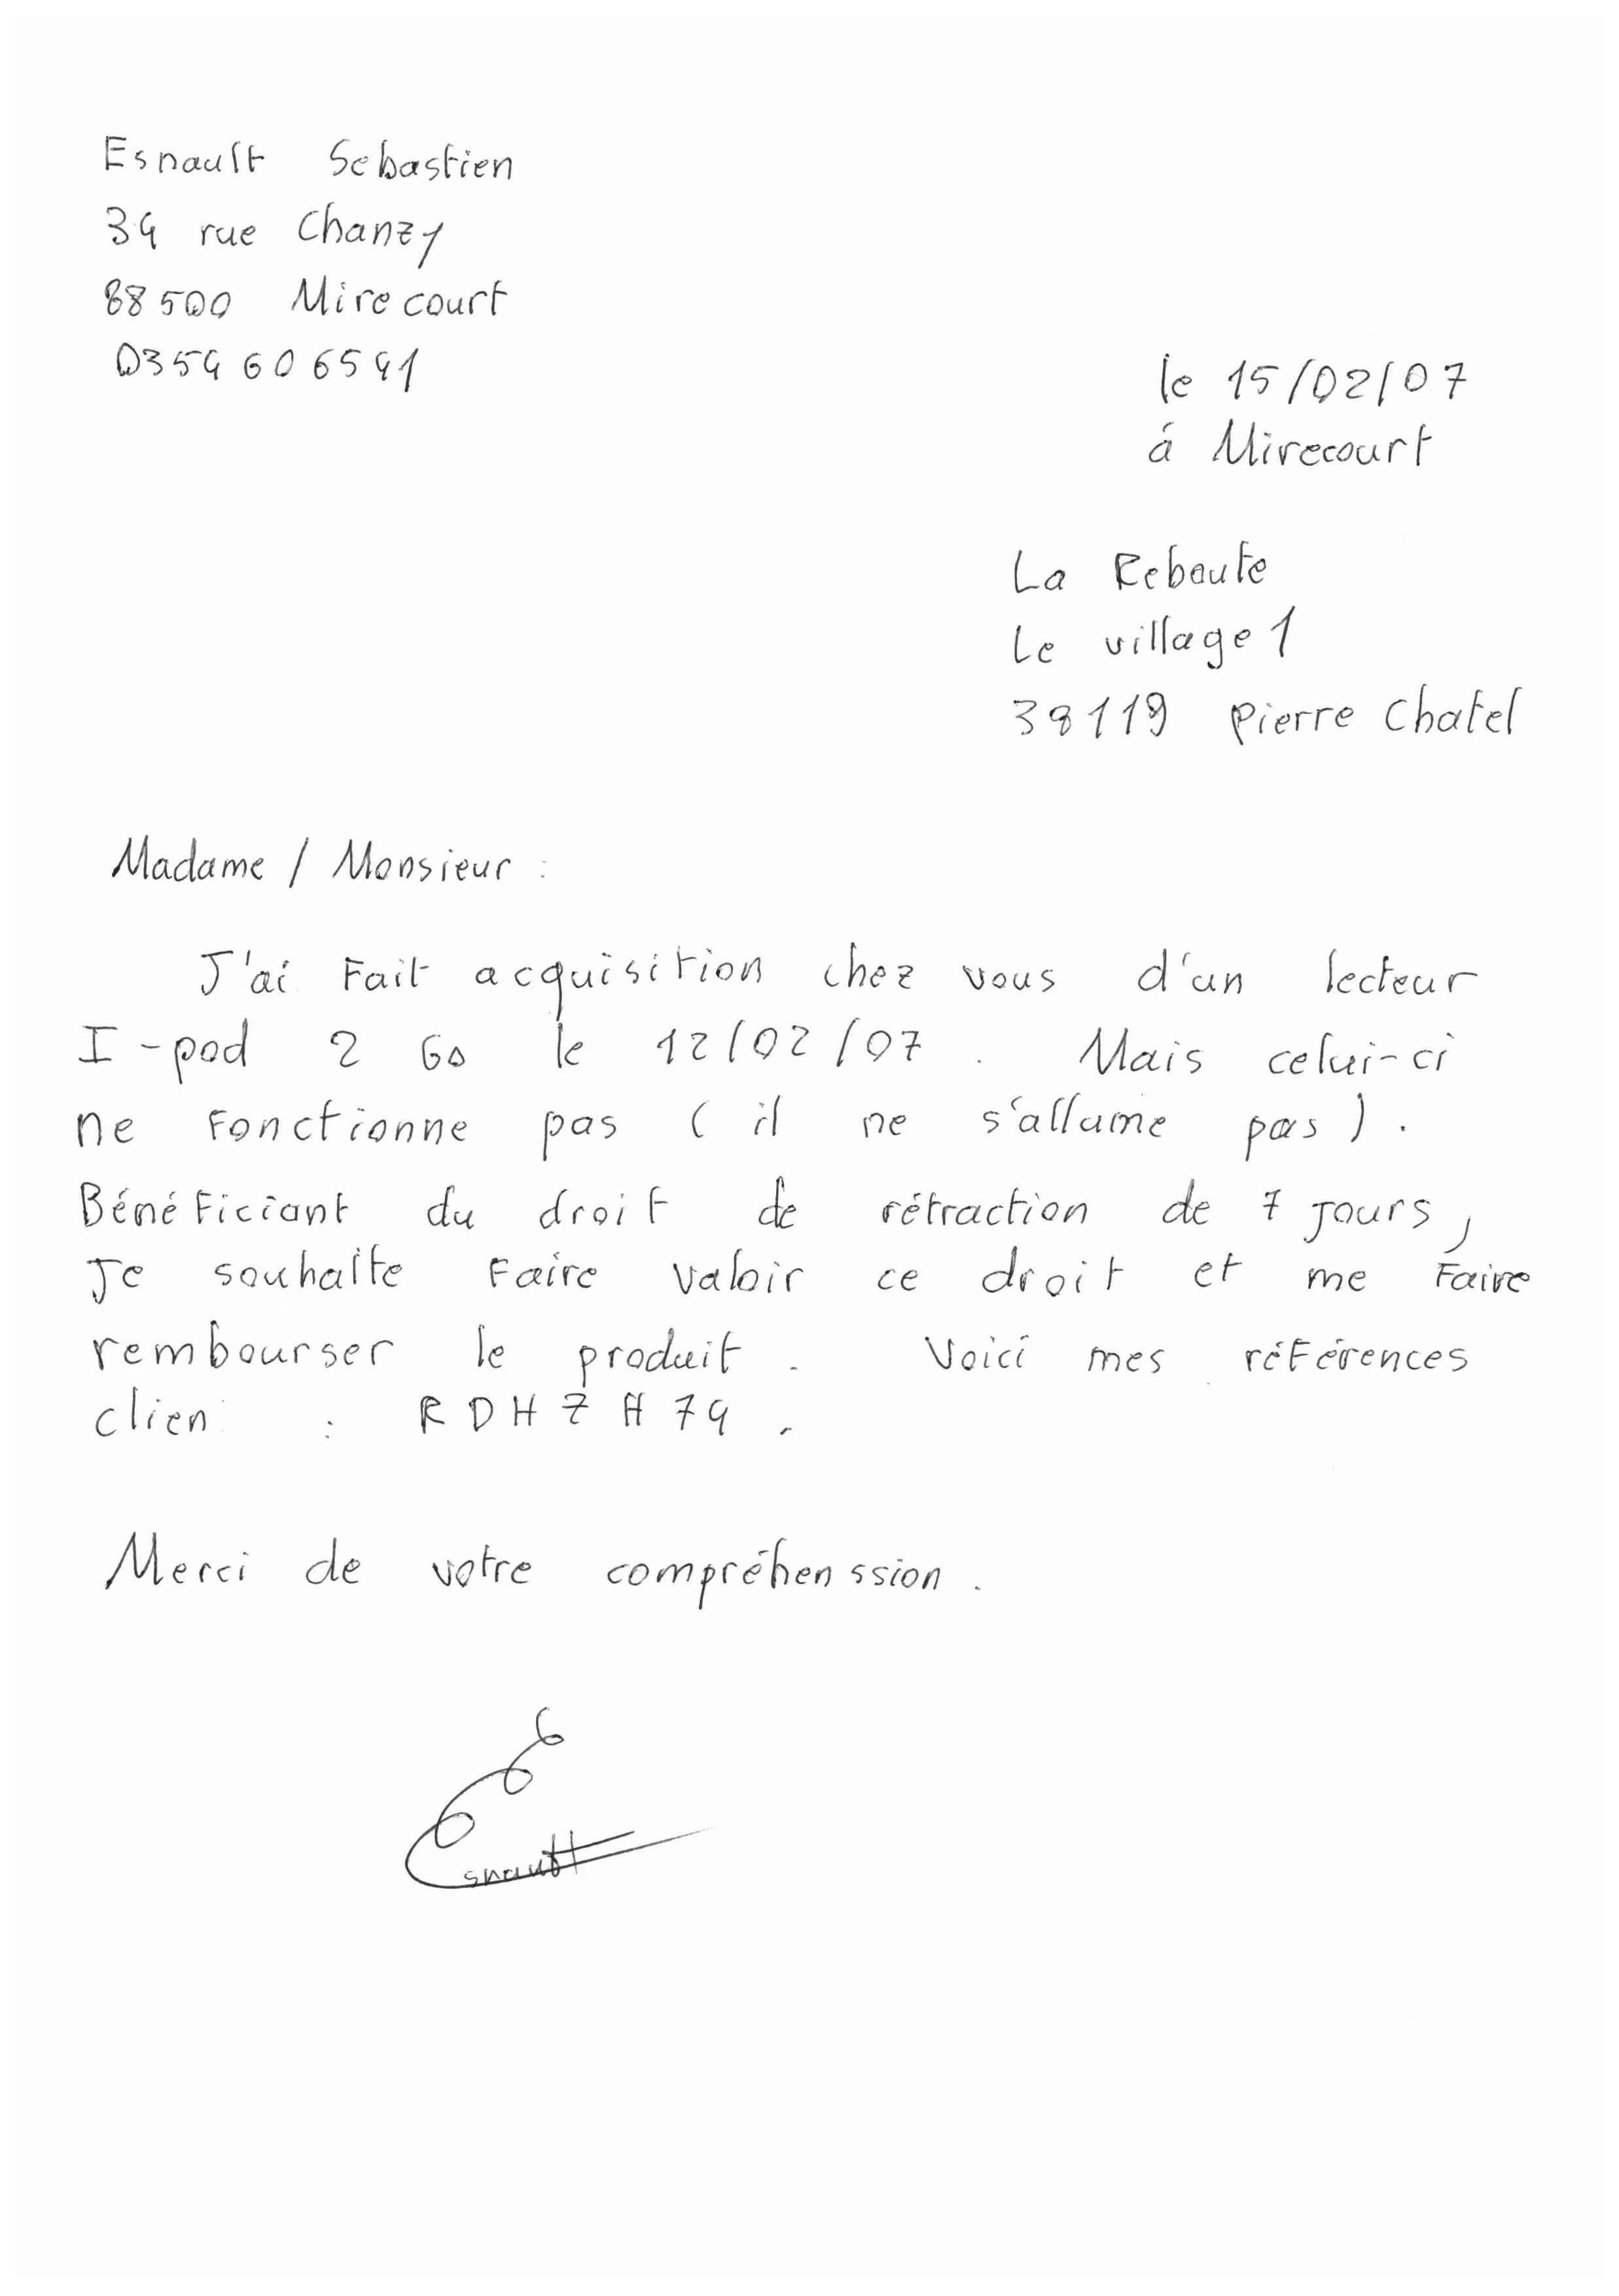 Esnault Sebastien
34 rue Chanzy
88500 Mirecourt
0354606541
le 15/02/07
à Mirecourt
La Reboute
Le village 1
38119 Pierre Chatel
Madame / Monsieur :
J'ai fait acquisition chez vous d'un lecteur
I-pod 2 Go le 12/02/07. Mais celui-ci
ne fonctionne pas (il ne s'allume pas).
Bénéficiant du droit de rétraction de 7 jours,
je souhaite faire valoir ce droit et me faire
rembourser le produit. Voici mes références
clien : RDHZH74.
Merci de votre compréhenssion.
Esnault